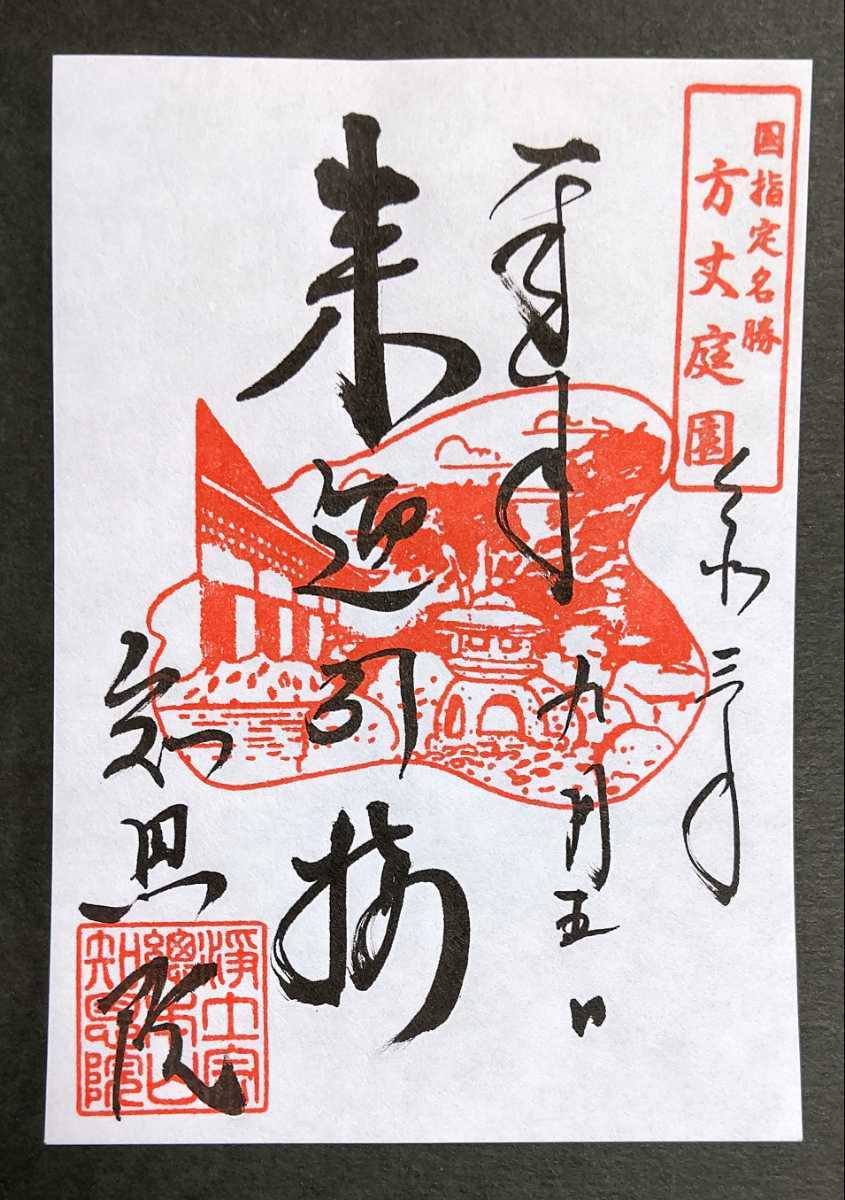 国指定名勝
方丈庭園
令和三年
九月五日
奉拝
来迎引接
知恩院
浄土宗
總本山
知恩院